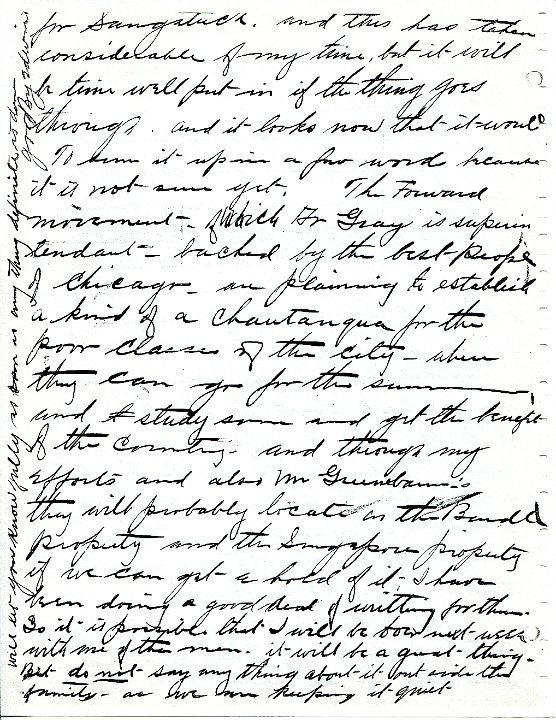 for Saugatuck. and this has taken
considerable of my time, but it will
be time well put in if the thing goes
through. and it looks now that it would
To sum it up in a few word because
it is not sure yet. The Forward
movement - which Dr Gray is superin
tendant - backed by the best people
of Chicago - are planning to establish
a kind of a Chautauqua for the
poor classes of the city - where
they can go for the summer
and study some and get the benefit
of the country - and through my
efforts and also Mr
they will probably locate on the
property and the Singapore property
if we can get a hold of it - I have
been doing a good deal of writting for them.
So it is possible that I will be next week
with one of the men. it will be a great thing -
But do not say any thing about it out side the
family - as we are keeping it quiet
will let you know fully as soon as any thing definite is done